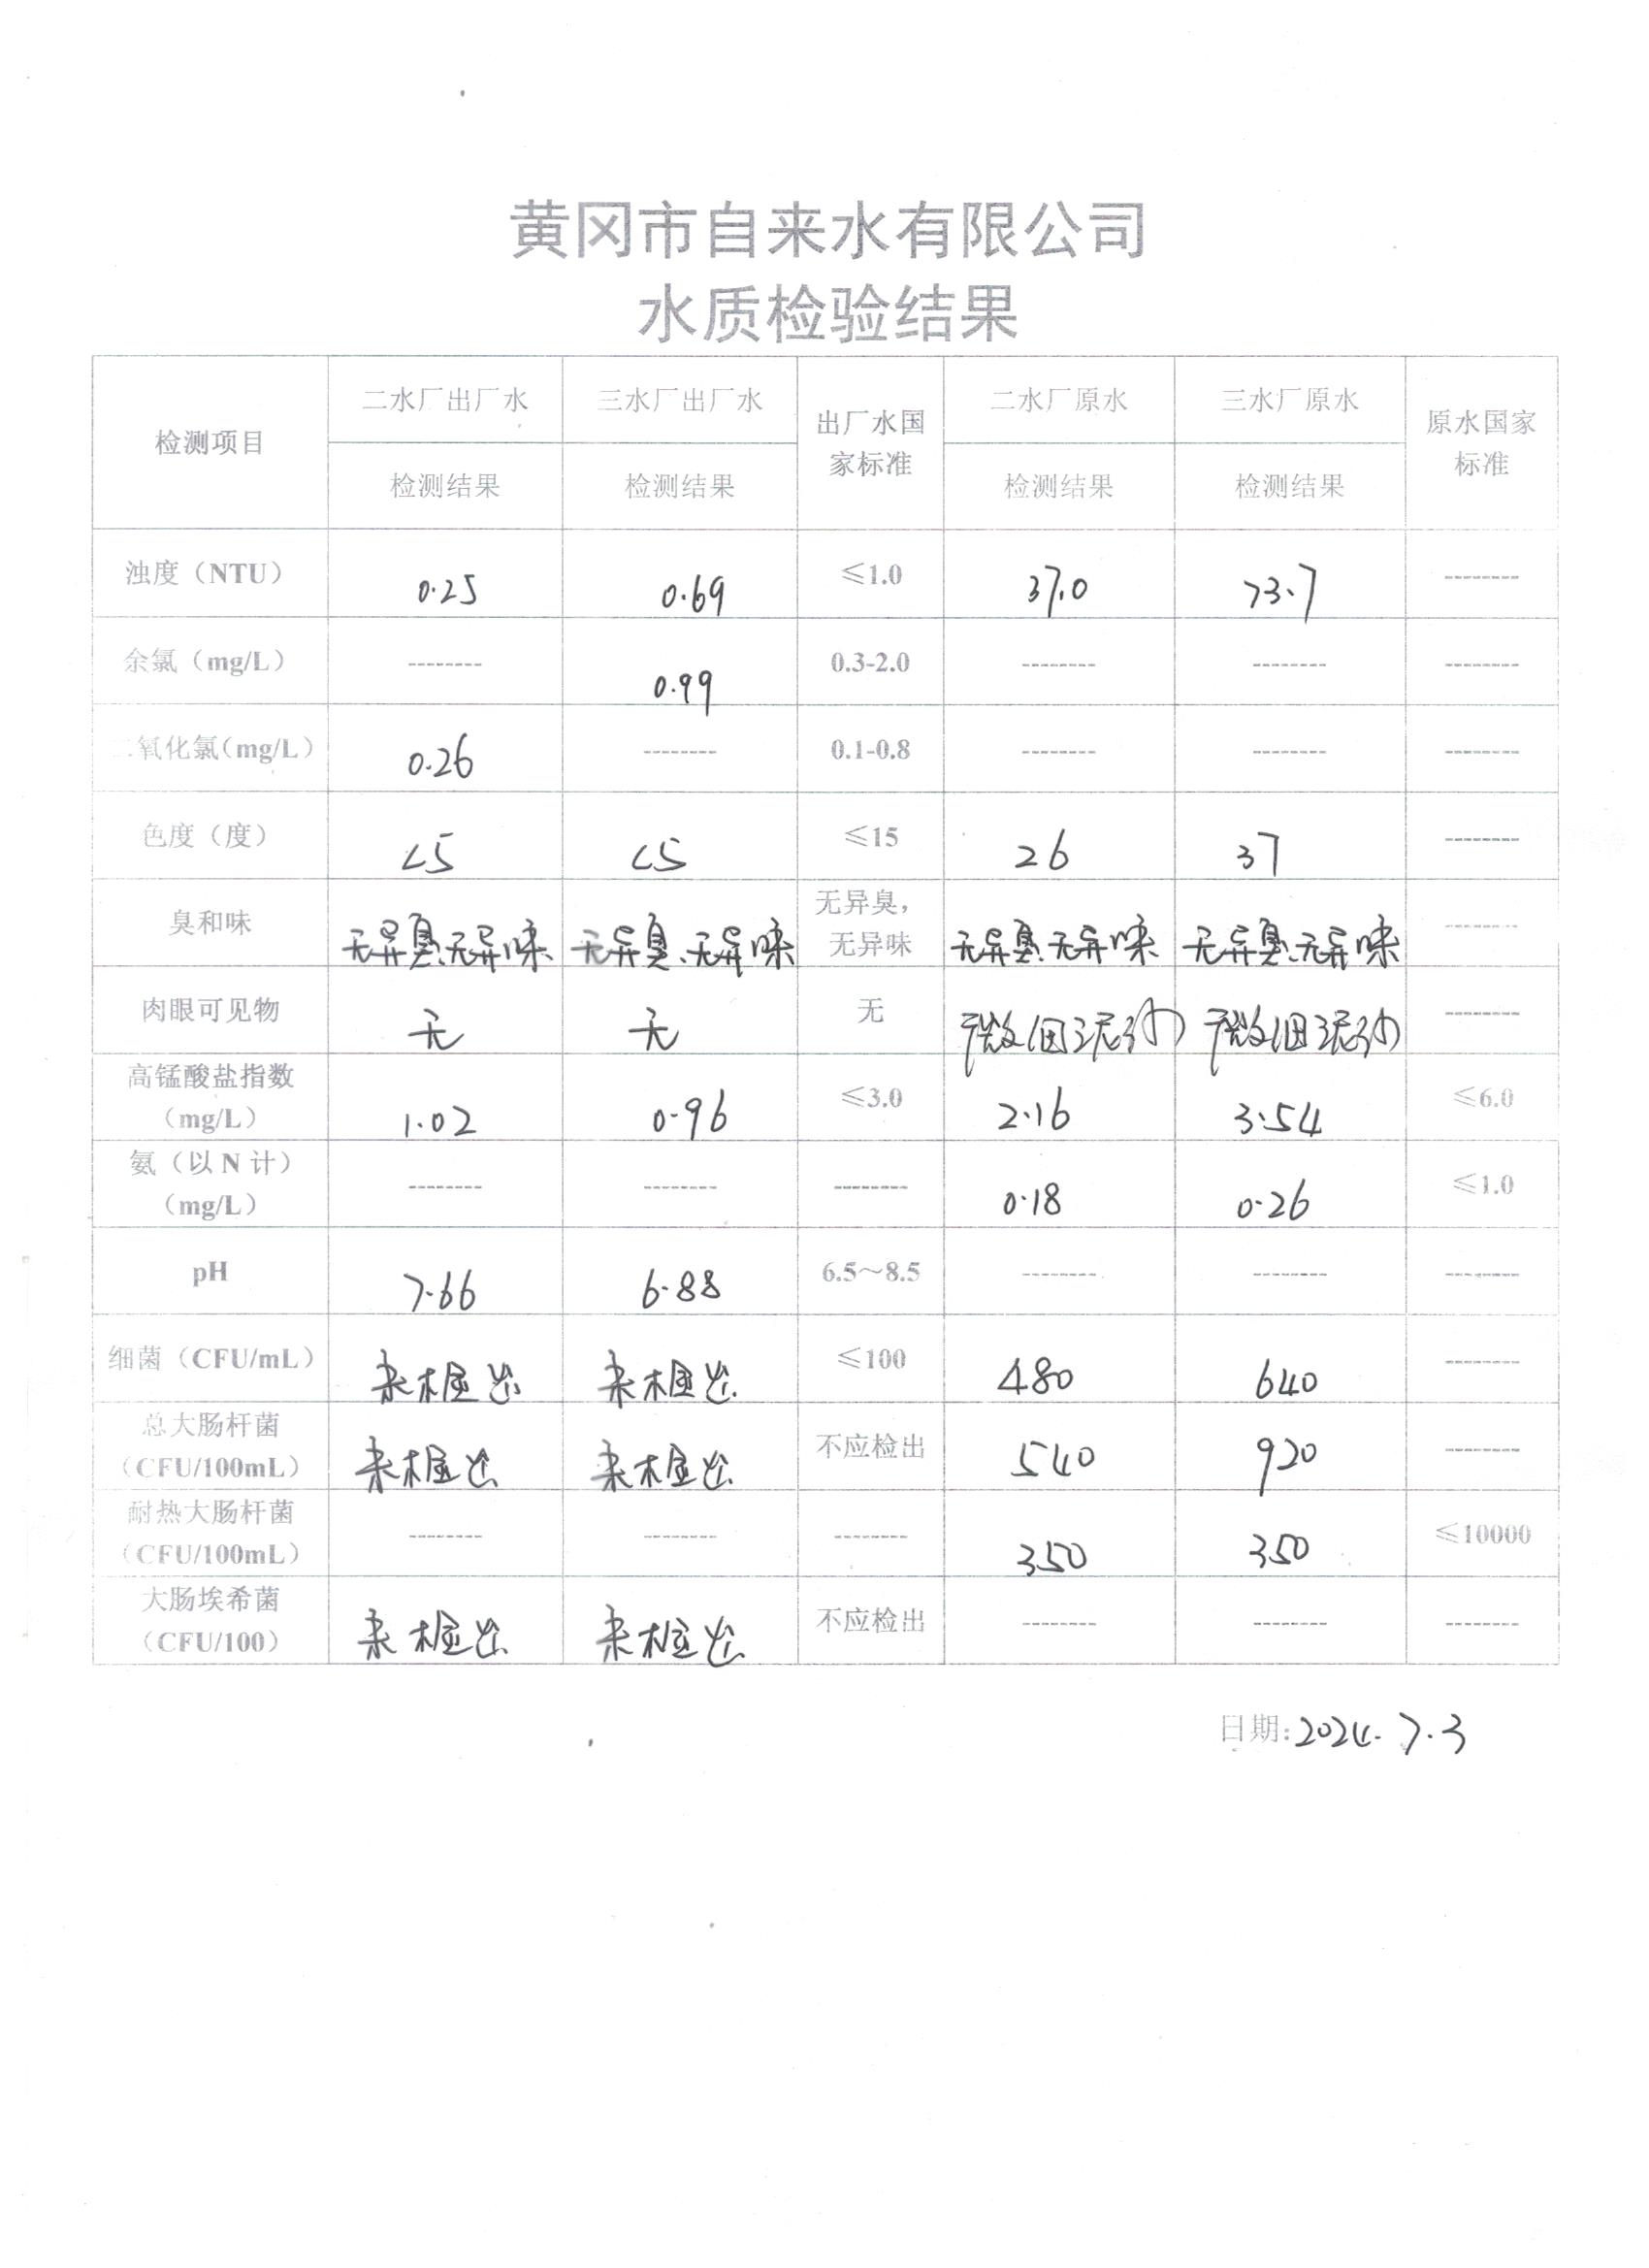 黄冈市自来水有限公司
水质检验结果
检测项目 二水厂出厂水 三水厂出厂水 出厂水国家标准 二水厂原水 三水厂原水 原水国家标准
检测结果 检测结果 检测结果 检测结果
浊度（NTU） 0.25 0.69 ≤1.0 37.0 73.7 --------
余氯（mg/L） -------- 0.99 0.3-2.0 -------- -------- --------
二氧化氯(mg/L) 0.26 -------- 0.1-0.8 -------- -------- --------
色度（度） <5 <5 ≤15 26 37 --------
臭和味 无异臭、无异味 无异臭、无异味 无异臭，无异味 无异臭、无异味 无异臭、无异味 --------
肉眼可见物 无 无 无 微细泥沙 微细泥沙 --------
高锰酸盐指数（mg/L） 1.02 0.96 ≤3.0 2.16 3.54 ≤6.0
氨（以N计）（mg/L） -------- -------- -------- 0.18 0.26 ≤1.0
pH 7.66 6.88 6.5～8.5 -------- -------- --------
细菌（CFU/mL） 未检出 未检出 ≤100 480 640 --------
总大肠杆菌（CFU/100mL） 未检出 未检出 不应检出 540 920 --------
耐热大肠杆菌（CFU/100mL） -------- -------- -------- 350 350 ≤10000
大肠埃希菌（CFU/100） 未检出 未检出 不应检出 -------- -------- --------
日期：2024.7.3